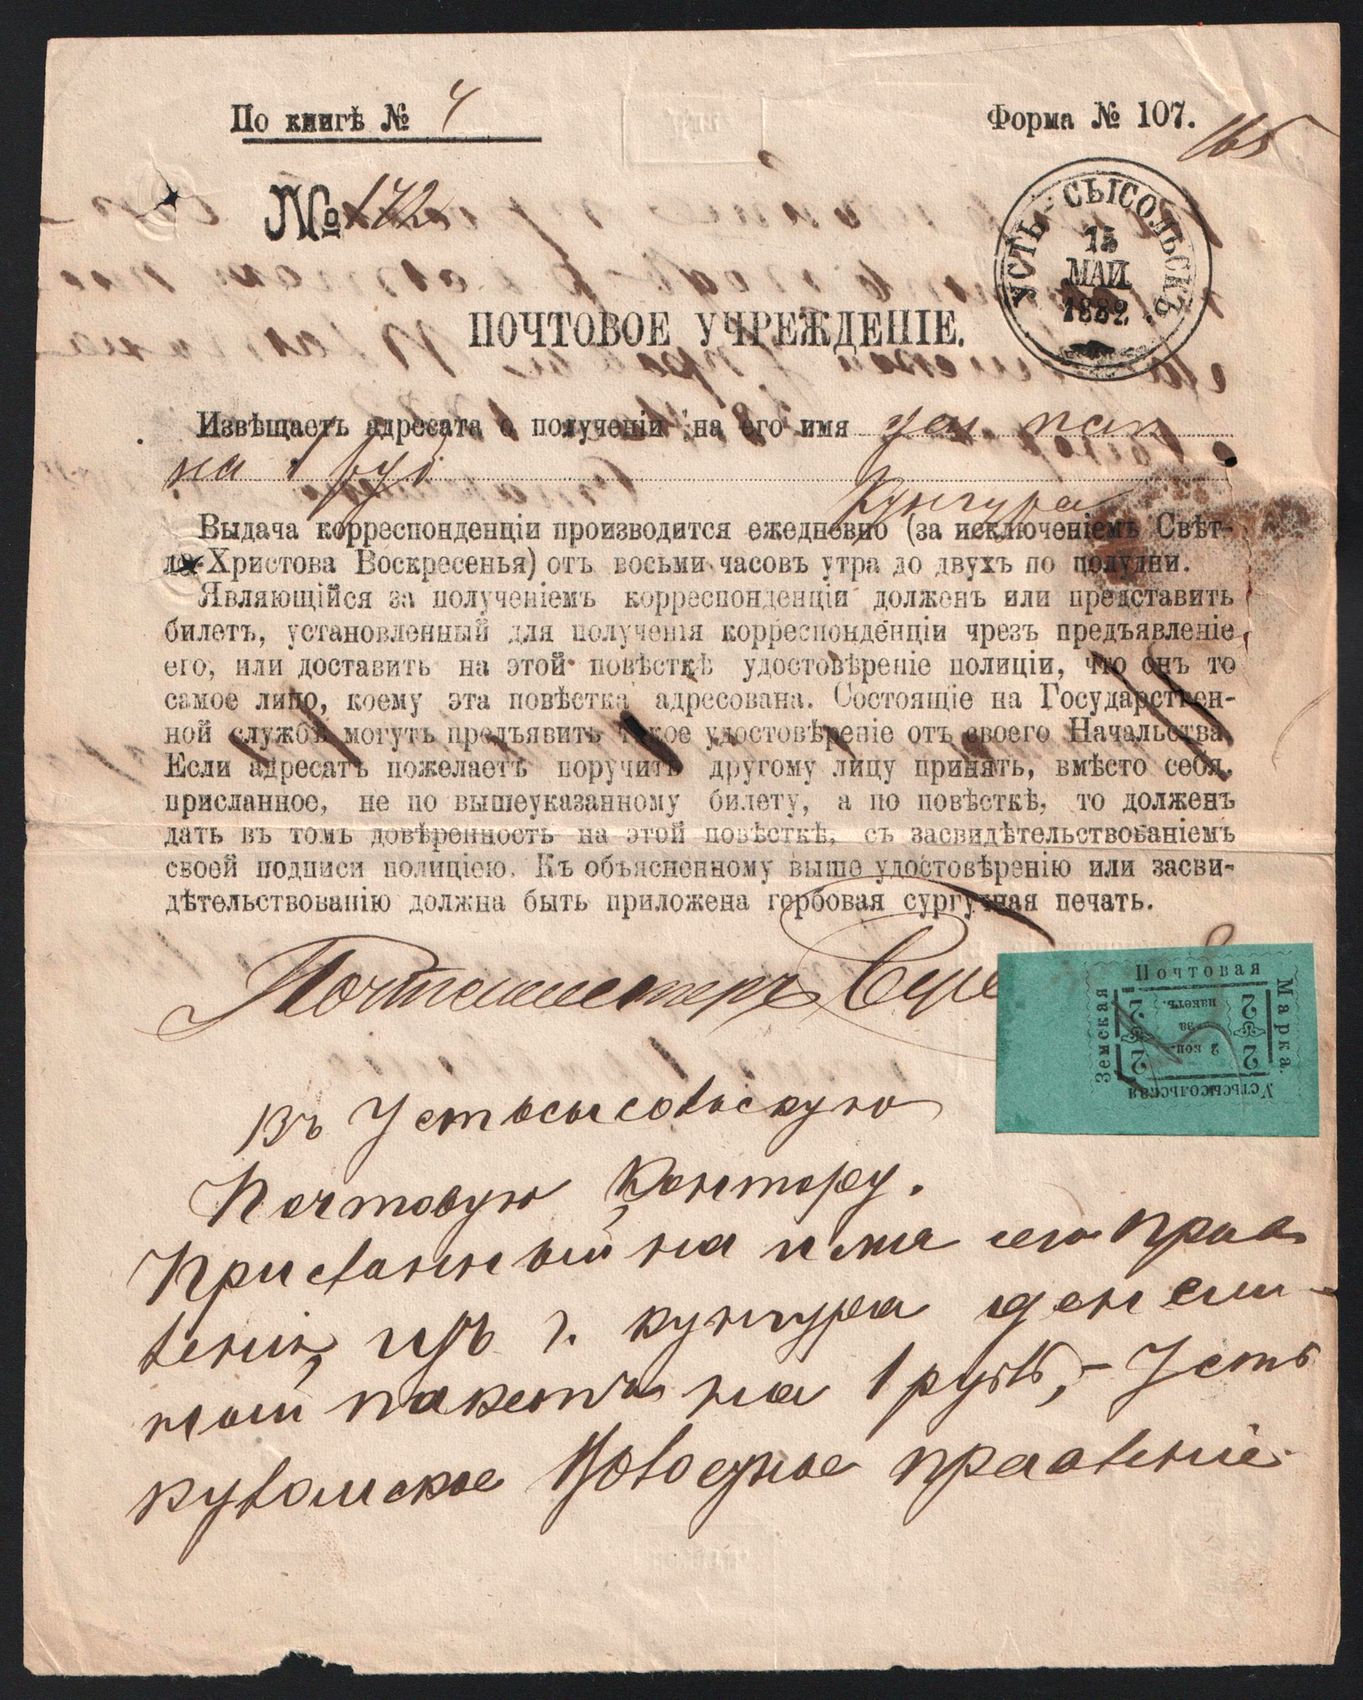 По книгѣ № 4
Форма № 107.
165
№ 172
УСТЬ-СЫСОЛЬСКЪ
15
МАЙ
1882
ПОЧТОВОЕ УЧРЕЖДЕНІЕ.
Извѣщаетъ адресата о полученіи на его имя ден пак
на 1 руб
Кунгура
Выдача корреспонденціи производится ежедневно (за исключеніемъ Свѣт-
ла-Христова Воскресенья) отъ восьми часовъ утра до двухъ по полудни.
Являющійся за полученіемъ корреспонденціи долженъ или представить
билетъ, установленный для полученія корреспонденціи чрезъ предъявленіе
его, или доставить на этой повѣсткѣ удостовѣреніе полиціи, что онъ то
самое лицо, коему эта повѣстка адресована. Состоящіе на Государствен-
ной службѣ могутъ предъявить такое удостовѣреніе отъ своего Начальства.
Если адресатъ пожелаетъ поручить другому лицу принять, вмѣсто себя,
присланное, не по вышеуказанному билету, а по повѣсткѣ, то долженъ
дать въ томъ довѣренность на этой повѣсткѣ, съ засвидѣтельствованіемъ
своей подписи полиціею. Къ объясненному выше удостовѣренію или засви-
дѣтельствованію должна быть приложена гербовая сургучная печать.
Почтмейстеръ
Почтовая
Марка.
Устьсысольская
Земская
2 2
2 2
2 коп.
за
пакетъ.
Въ Устьсысольскую
Почтовую Контору.
Присланный на имя сего Прав
ленія изъ г. Кунгура денеж-
ный пакетъ на 1 рубль, - Усть
куломское Волосное правленіе